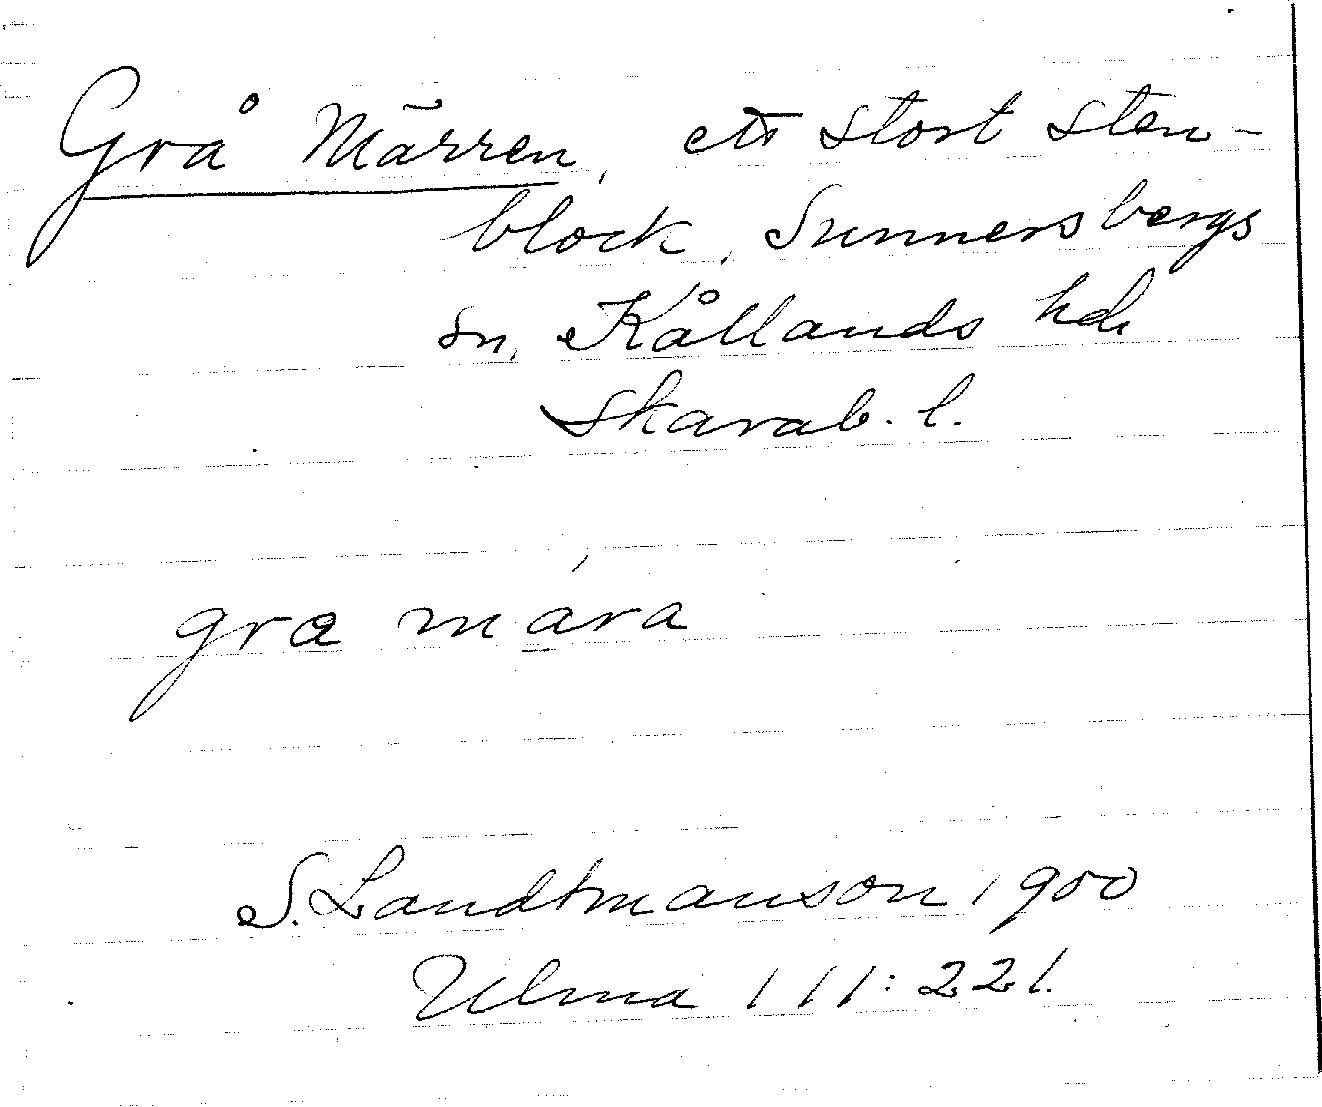 Grå Märren, ett stort sten-
block, Sunnersbergs
sn, Kållands hd,
Skarab. l.
gra mára
S. Landtmanson 1900
Ulma 111:221.